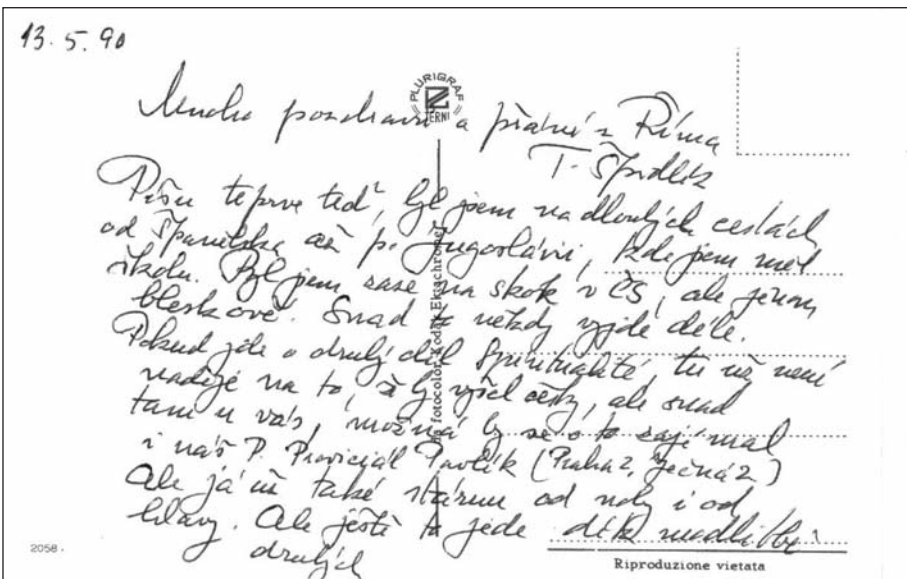 13.5.90
PLURIGRAF
TERNI
Mnoho pozdravů a přání z Říma
T. Špidlík
Píšu teprve teď, byl jsem na dlouhých cestách
od Španělska až po Jugoslávii, kde jsem měl
školu. Byl jsem zase na skok v ČS, ale jenom
bleskově. Snad to někdy vyjde déle.
Pokud jde o druhý díl Spiritualité, tu už není
naděje na to, že by vyšel česky, ale snad
tam u vás, možná by se o to zajímal
i náš P. Provinciál Pavlík (Praha 2, Ječná 2)
Ale já už také stárnu od nohy i od
hlavy. Ale ještě to jede díky modlitbě
druhých
fotocolor Kodak Ektachrome
2058.
Riproduzione vietata